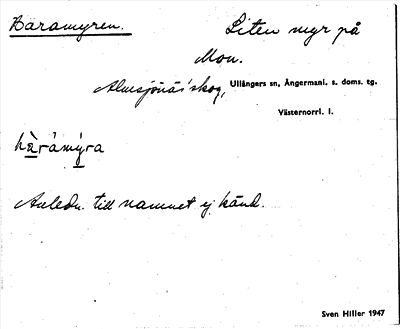 Haramyren. Liten myr på
Mon.
Almsjönäs' skog, Ullångers sn, Ångermanl. s. doms. tg.
Västernorrl. l.
hàråmýra
Anledn. till namnet ej känd.
Sven Hiller 1947